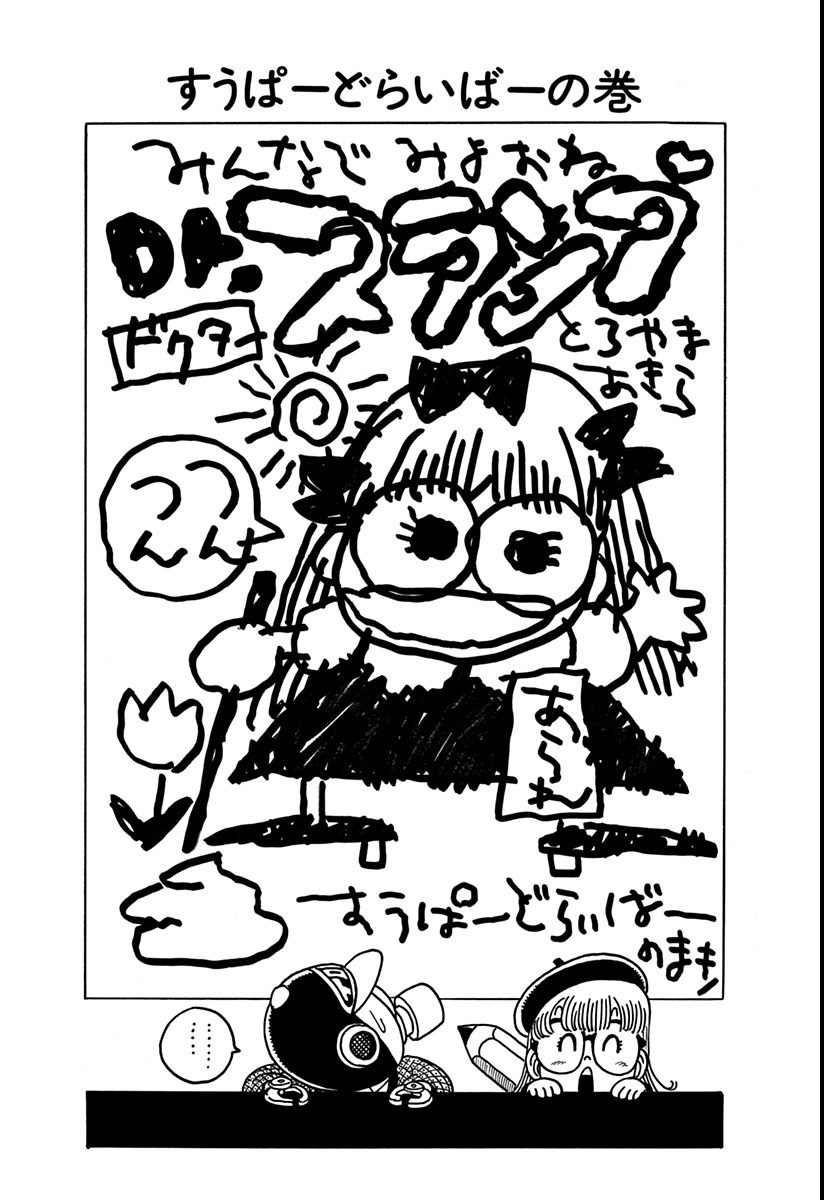 すうぱーどらいばーの巻
みんなで みよおね
Dr.スランプ
ドクター
とろやま
あきら
つん
つん
あられ
すうぱーどらいばー
のまき
……
……